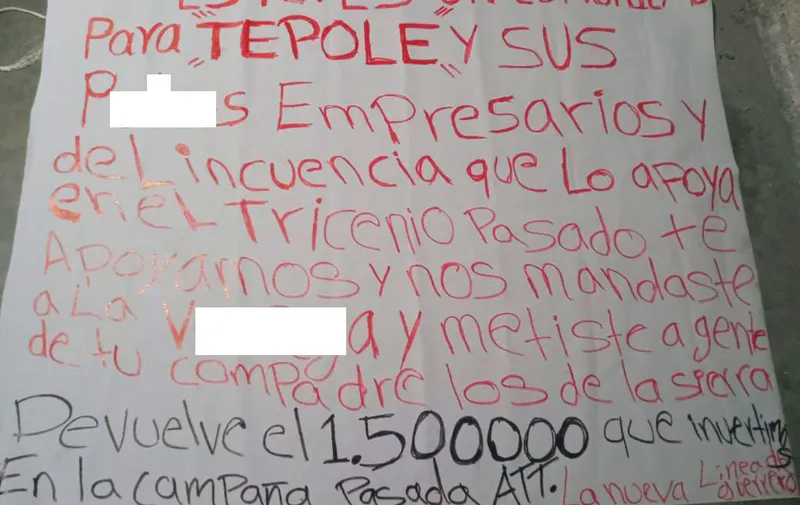 Para "TEPOLE" Y SUS
P s Empresarios y
delincuencia que Lo apoya
en el Tricenio Pasado te
Apoyamos y nos mandaste
a La V a y metiste agente
de tu compadre los de la sierra
Devuelve el 1.500000 que invertimos
En la campaña Pasada ATT. La nueva Linea de
Guerrero